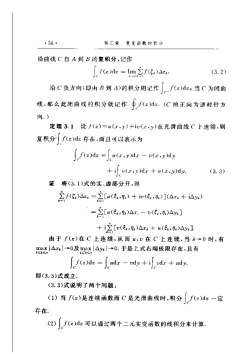 ·34· 第三章 复变函数的积分
沿曲线 C 自 A 到 B 的复积分,记作
∫_C f(z)dz = lim Σ f(ζ_k)Δz_k. (3.2)
沿 C 负方向(即由 B 到 A)的积分则记作 ∫_{C^-} f(z)dz. 当 C 为闭曲
线,那么此闭曲线的积分就记作 ∮_C f(z)dz. (C 的正向为逆时针方
向.)
定理 3.1 设 f(z)=u(x,y)+iv(x,y)在光滑曲线 C 上连续,则
复积分∫_C f(z)dz 存在,而且可以表示为
∫_C f(z)dz = ∫_C u(x,y)dx − v(x,y)dy
+ i∫_C v(x,y)dx + u(x,y)dy. (3.3)
证 将(3.1)式的实,虚部分开,得
Σ f(ζ_k)Δz_k = Σ [u(ξ_k,η_k) + iv(ξ_k,η_k)](Δx_k + iΔy_k)
= Σ [u(ξ_k,η_k)Δx_k − v(ξ_k,η_k)Δy_k]
+ iΣ [v(ξ_k,η_k)Δx_k + u(ξ_k,η_k)Δy_k].
由于 f(z)在 C 上连续,从而 u,v 在 C 上连续,当 λ→0 时,有
max|Δx_k|→0及max|Δy_k|→0,于是上式右端极限存在,且有
∫_C f(z)dz = ∫_C udx − vdy + i∫_C vdx + udy.
即(3.3)式成立.
(3.3)式说明了两个问题:
(1) 当 f(z)是连续函数而 C 是光滑曲线时,积分∫_C f(z)dz 一定
存在.
(2) ∫_C f(z)dz 可以通过两个二元实变函数的线积分来计算.